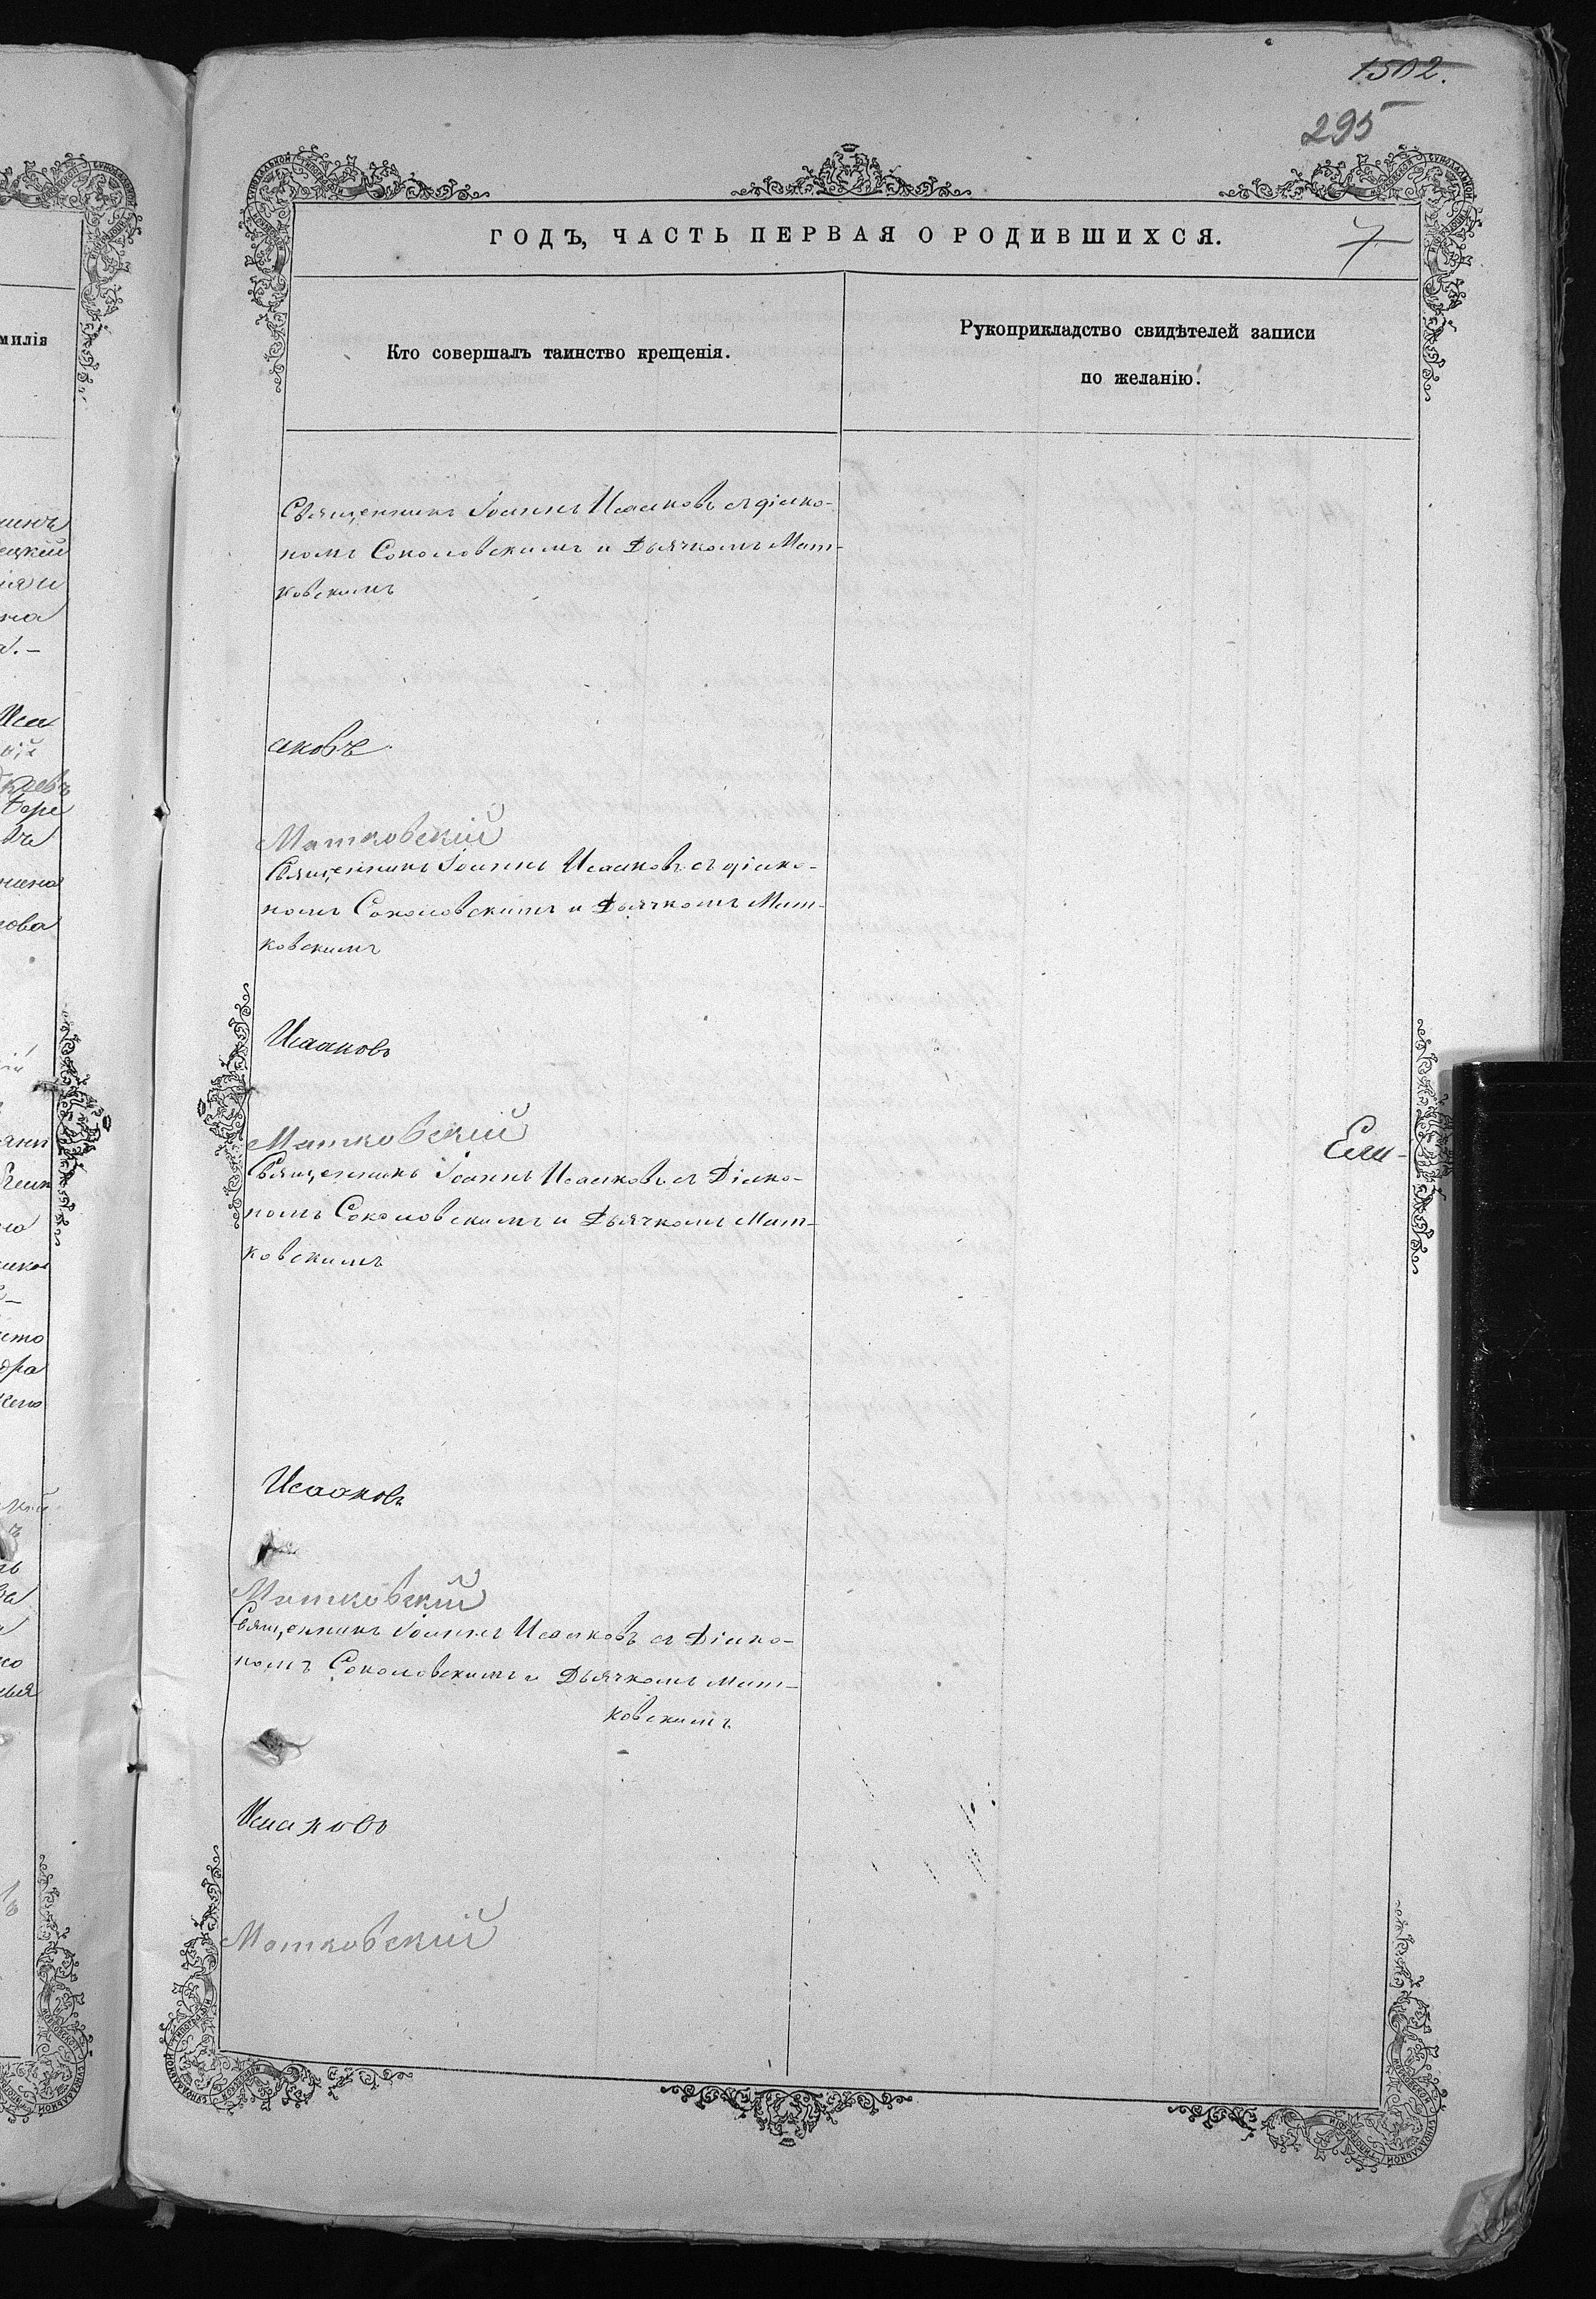 1502.
295
ГОДЪ, ЧАСТЬ ПЕРВАЯ О РОДИВШИХСЯ.
7
милія
Кто совершалъ таинство крещенія.
Рукоприкладство свидѣтелей записи
по желанію.
Священникъ Іоаннъ Исааковъ съ діако-
номъ Соколовскимъ и Дьячкомъ Мат-
ковскимъ
аковъ
Матковскій
Священникъ Іоаннъ Исааковъ съ діако-
номъ Соколовскимъ и Дьячкомъ Мат-
ковскимъ
Исааковъ
Матковскій
Священникъ Іоаннъ Исааковъ съ Діако-
номъ Соколовскимъ и Дьячкомъ Мат-
ковскимъ
Ели-
Исааковъ
Матковскій
Священникъ Іоаннъ Исааковъ съ Діако-
номъ Соколовскимъ и Дьячкомъ Мат-
ковскимъ
Исааковъ
Матковскій